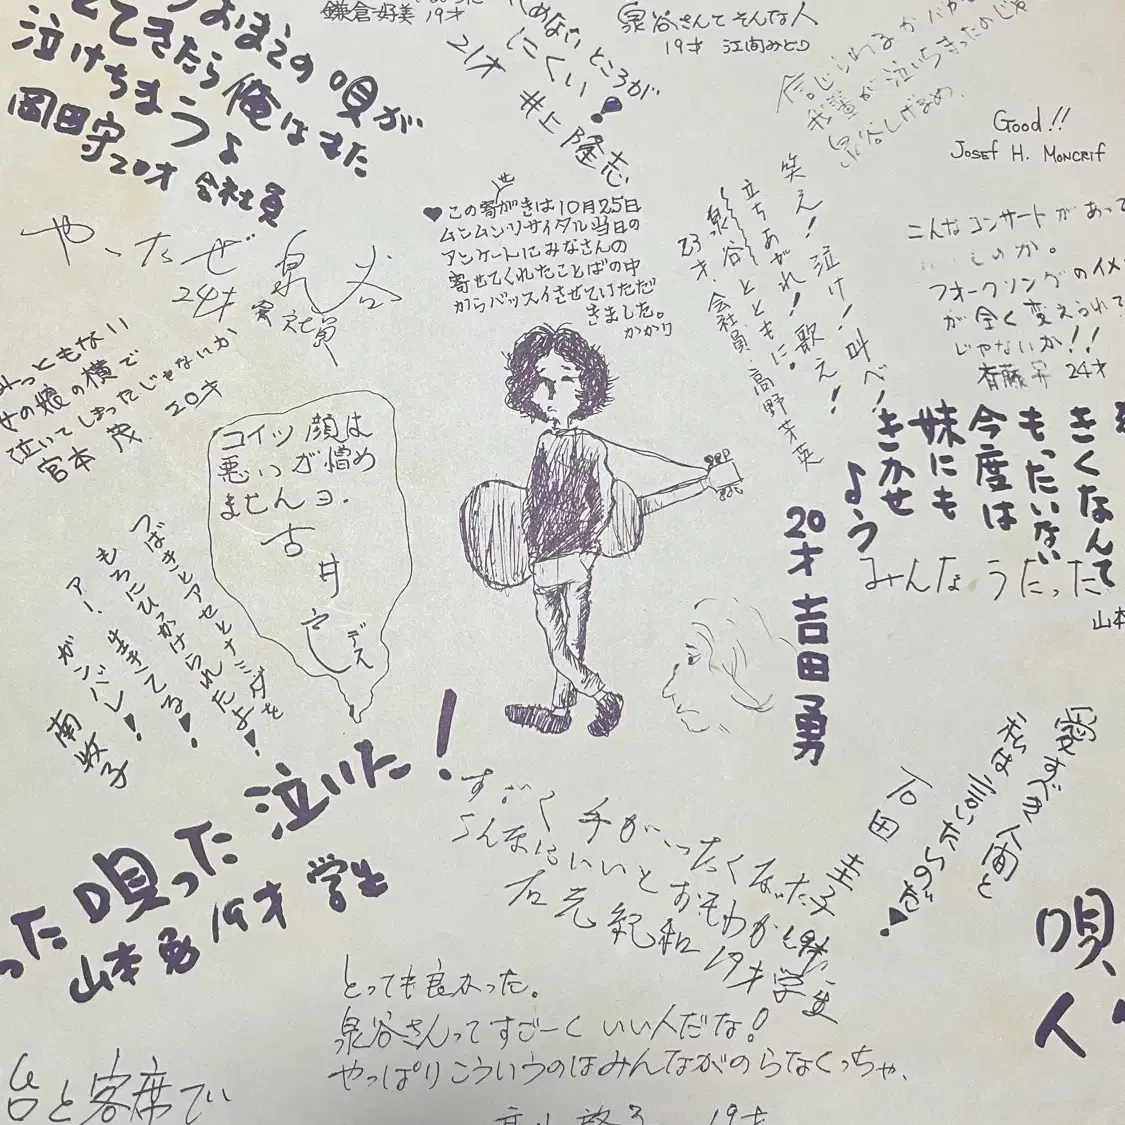 鎌倉好美 19才
泉谷さんてそんな人
19才 江間みどり
おまえの唄が
てきたら俺はまた
泣けちまうよ
岡田守 20才 会社員
めないところが
にくい!
21才 井上隆志
我輩が泣いちまったのじゃ
泉谷しげるめ、
Good!!
Josef H. Moncrif
こんなコンサートがあって
ものか。
フォークソングのイメ
が全く変えられて
じゃないか!!
斉藤 24才
せ
♥この寄がきは10月25日
ムンムンリサイタル当日の
アンケートにみなさんの
寄せてくれたことばの中
からバッスイさせていただ
きました。
かかり
笑え!泣け!叫べ!
立ちあがれ!歌え!
泉谷とともに。
23才 会社員 高野芳英
やったぜ 泉谷
24才 会社員
みっともない
女の娘の横で
泣いてしまったじゃないか
宮本 茂 20才
コイツ顔は
悪いつが憎め
ませんヨ.
古井
デス
きくなんて
もったいない
今度は
妹にも
きかせ
よう
20才 吉田勇
みんなうたった
山本
つばきとアセとナミダを
もろにひっかけられたよ!
アー、生きてる!
ガンバレ!
南 牧子
った唄った泣いた!
山本 勇 19才 学生
すごく手がいたくなった
こんなにいいとおもわなかった
右元 紀和 19才 学生
愛すべき人間と
私は言いたいのだ!
石田 圭子
唄、
人
とっても良かった。
泉谷さんってすごーくいい人だな!
やっぱりこういうのはみんながのらなくっちゃ、
19才
台と客席で